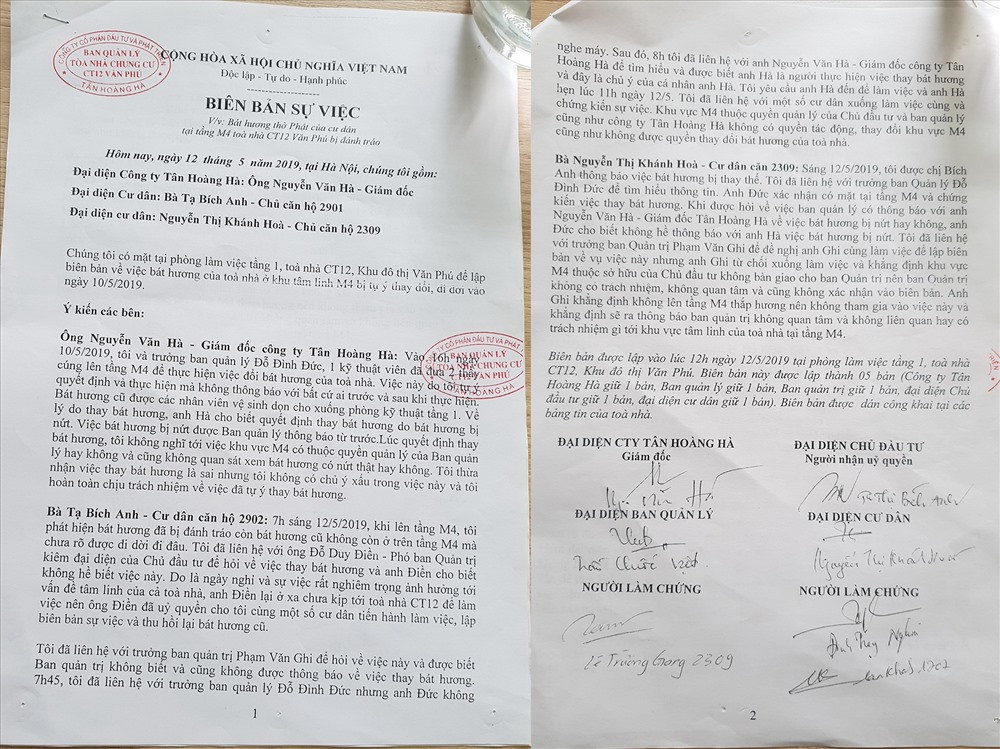 CÔNG TY CỔ PHẦN ĐẦU TƯ VÀ PHÁT TRIỂN
BAN QUẢN LÝ
TÒA NHÀ CHUNG CƯ
CT12 VĂN PHÚ
TÂN HOÀNG HÀ
CỘNG HÒA XÃ HỘI CHỦ NGHĨA VIỆT NAM
Độc lập - Tự do - Hạnh phúc
----------------------
BIÊN BẢN SỰ VIỆC
V/v: Bát hương thờ Phật của cư dân
tại tầng M4 toà nhà CT12 Văn Phú bị đánh tráo
Hôm nay, ngày 12 tháng 5 năm 2019, tại Hà Nội, chúng tôi gồm:
Đại diện Công ty Tân Hoàng Hà: Ông Nguyễn Văn Hà - Giám đốc
Đại diện Cư dân: Bà Tạ Bích Anh - Chủ căn hộ 2901
Đại diện cư dân: Nguyễn Thị Khánh Hoà - Chủ căn hộ 2309
Chúng tôi có mặt tại phòng làm việc tầng 1, toà nhà CT12, Khu đô thị Văn Phú để lập
biên bản về việc bát hương của toà nhà ở khu tâm linh M4 bị tự ý thay đổi, di dời vào
ngày 10/5/2019.
Ý kiến các bên:
Ông Nguyễn Văn Hà - Giám đốc công ty Tân Hoàng Hà: Vào 16h ngày
10/5/2019, tôi và trưởng ban quản lý Đỗ Đình Đức, 1 kỹ thuật viên đã đưa 2 thầy
cúng lên tầng M4 để thực hiện việc đổi bát hương của toà nhà. Việc này do tôi tự ý
quyết định và thực hiện mà không thông báo với bất cứ ai trước và sau khi thực hiện.
Bát hương cũ được các nhân viên vệ sinh dọn cho xuống phòng kỹ thuật tầng 1. Về
lý do thay bát hương, anh Hà cho biết quyết định thay bát hương do bát hương bị
nứt. Việc bát hương bị nứt được Ban quản lý thông báo từ trước.Lúc quyết định thay
bát hương, tôi không nghĩ tới việc khu vực M4 có thuộc quyền quản lý của Ban quản
lý hay không và cũng không quan sát xem bát hương có nứt thật hay không. Tôi thừa
nhận việc thay bát hương là sai nhưng tôi không có chủ ý xấu trong việc này và tôi
hoàn toàn chịu trách nhiệm về việc đã tự ý thay bát hương.
BAN QUẢN LÝ
TÒA NHÀ CHUNG CƯ
CT12 VĂN PHÚ
TÂN HOÀNG HÀ
Bà Tạ Bích Anh - Cư dân căn hộ 2902: 7h sáng 12/5/2019, khi lên tầng M4, tôi
phát hiện bát hương đã bị đánh tráo còn bát hương cũ không còn ở trên tầng M4 mà
chưa rõ được di dời đi đâu. Tôi đã liên hệ với ông Đỗ Duy Điền - Phó ban Quản trị
kiêm đại diện của Chủ đầu tư để hỏi về việc thay bát hương và anh Điền cho biết
không hề biết việc này. Do là ngày nghỉ và sự việc rất nghiêm trọng ảnh hưởng tới
vấn đề tâm linh của cả toà nhà, anh Điền lại ở xa chưa kịp tới toà nhà CT12 để làm
việc nên ông Điền đã uỷ quyền cho tôi cùng một số cư dân tiến hành làm việc, lập
biên bản sự việc và thu hồi lại bát hương cũ.
Tôi đã liên hệ với trưởng ban quản trị Phạm Văn Ghi để hỏi về việc này và được biết
Ban quản trị không biết và cũng không được thông báo về việc thay bát hương.
7h45, tôi đã liên hệ với trưởng ban quản lý Đỗ Đình Đức nhưng anh Đức không
1
nghe máy. Sau đó, 8h tôi đã liên hệ với anh Nguyễn Văn Hà - Giám đốc công ty Tân
Hoàng Hà để tìm hiểu và được biết anh Hà là người thực hiện việc thay bát hương
và đây là chủ ý của cá nhân anh Hà. Tôi yêu cầu anh Hà đến để làm việc và anh Hà
hẹn lúc 11h ngày 12/5. Tôi đã liên hệ với một số cư dân xuống làm việc cùng và
chứng kiến sự việc. Khu vực M4 thuộc quyền quản lý của Chủ đầu tư và ban quản lý
cũng như công ty Tân Hoàng Hà không có quyền tác động, thay đổi khu vực M4
cũng như không được quyền thay đổi bát hương của toà nhà.
Bà Nguyễn Thị Khánh Hoà - Cư dân căn 2309: Sáng 12/5/2019, tôi được chị Bích
Anh thông báo việc bát hương bị thay thế. Tôi đã liên hệ với trưởng ban Quản lý Đỗ
Đình Đức để tìm hiểu thông tin. Anh Đức xác nhận có mặt tại tầng M4 và chứng
kiến việc thay bát hương. Khi được hỏi về việc ban quản lý có thông báo với anh
Nguyễn Văn Hà - Giám đốc Tân Hoàng Hà về việc bát hương bị nứt hay không, anh
Đức cho biết không hề thông báo với anh Hà việc bát hương bị nứt. Tôi đã liên hệ
với trưởng ban Quản trị Phạm Văn Ghi để đề nghị anh Ghi cùng làm việc để lập biên
bản về vụ việc này nhưng anh Ghi từ chối xuống làm việc và khẳng định khu vực
M4 thuộc sở hữu của Chủ đầu tư không bàn giao cho ban Quản trị nên ban Quản trị
không có trách nhiệm, không quan tâm và cũng không xác nhận vào biên bản. Anh
Ghi khẳng định không lên tầng M4 thắp hương nên không tham gia vào việc này và
khẳng định sẽ ra thông báo ban quản trị không quan tâm và không liên quan hay có
trách nhiệm gì tới khu vực tâm linh của toà nhà tại tầng M4.
Biên bản được lập vào lúc 12h ngày 12/5/2019 tại phòng làm việc tầng 1, toà nhà
CT12, Khu đô thị Văn Phú. Biên bản này được lập thành 05 bản (Công ty Tân
Hoàng Hà giữ 1 bản, Ban quản lý giữ 1 bản, Ban quản trị giữ 1 bản, đại diện Chủ
đầu tư giữ 1 bản, đại diện cư dân giữ 1 bản). Biên bản được dán công khai tại các
bảng tin của toà nhà.
ĐẠI DIỆN CTY TÂN HOÀNG HÀ
Giám đốc
ĐẠI DIỆN CHỦ ĐẦU TƯ
Người nhận uỷ quyền
Tạ Thị Bích Anh
ĐẠI DIỆN BAN QUẢN LÝ
ĐẠI DIỆN CƯ DÂN
Nguyễn Thị Khánh Hoà
NGƯỜI LÀM CHỨNG
NGƯỜI LÀM CHỨNG
Lê Trường Giang 2309
2